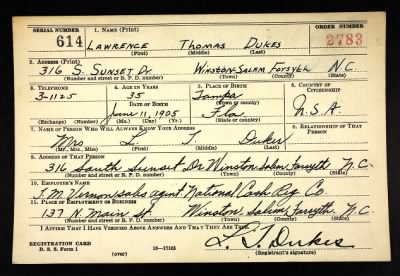 SERIAL NUMBER 1. NAME (Print) ORDER NUMBER
614 LAWRENCE THOMAS DUKES 2783
(First) (Middle) (Last)
2. ADDRESS (Print)
316 S. SUNSET Dr. WINSTON-SALEM FORSYTH N.C.
(Number and street or R. F. D. number) (Town) (County) (State)
3. TELEPHONE 4. AGE IN YEARS 5. PLACE OF BIRTH 6. COUNTRY OF CITIZENSHIP
3-1125 35 Tampa
DATE OF BIRTH (Town or county)
June 11, 1905 Fla U.S.A
(Exchange) (Number) (Mo.) (Day) (Yr.) (State or country)
7. NAME OF PERSON WHO WILL ALWAYS KNOW YOUR ADDRESS 8. RELATIONSHIP OF THAT PERSON
Mrs L. T. Dukes
(Mr., Mrs., Miss) (First) (Middle) (Last)
9. ADDRESS OF THAT PERSON
316 South Sunset Dr Winston Salem Forsyth N.C.
(Number and street or R. F. D. number) (Town) (County) (State)
10. EMPLOYER'S NAME
J. M. Vernon sales agent National Cash Reg. Co.
11. PLACE OF EMPLOYMENT OR BUSINESS
137 N. Main St. Winston Salem Forsyth N.C
(Number and street or R. F. D. number) (Town) (County) (State)
I AFFIRM THAT I HAVE VERIFIED ABOVE ANSWERS AND THAT THEY ARE TRUE.
REGISTRATION CARD
D. S. S. Form 1 16-17105 L. T. Dukes
(over) (Registrant's signature)